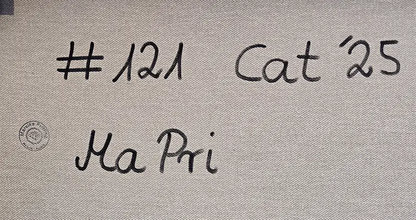 #121 Cat '25
Ma Pri